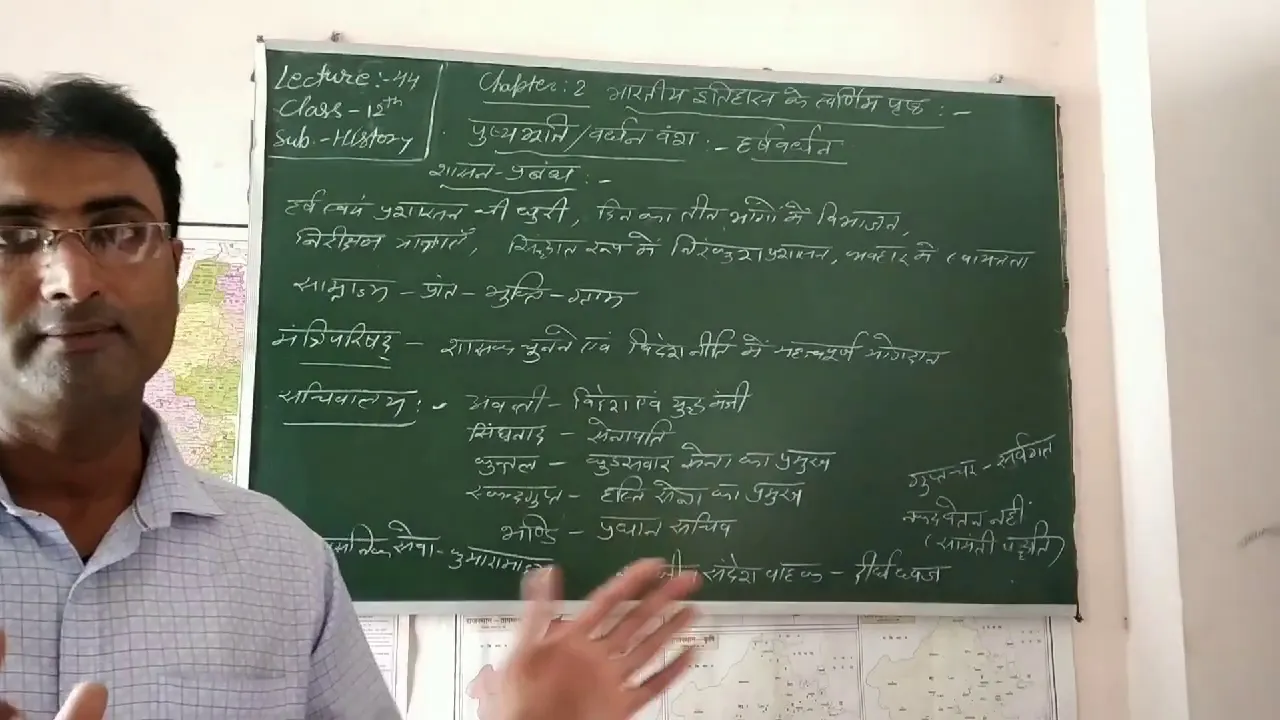 Lecture:-44
Class-12th
Sub.-History
Chapter:2 भारतीय इतिहास के स्वर्णिम पृष्ठ:-
पुष्यभूति/वर्धन वंश:- हर्षवर्धन
शासन-प्रबंध:-
हर्ष स्वयं प्रशासन की धुरी, दिन का तीन भागों में विभाजन,
निरीक्षण यात्राएँ, सिद्धांत रूप में निरंकुश प्रशासन, व्यवहार में स्वायत्तता
साम्राज्य - प्रांत - भुक्ति - ग्राम
मंत्रिपरिषद् - शासक चुनने एवं विदेश नीति में महत्वपूर्ण योगदान
सचिवालय:- अवन्ती - विदेश एवं युद्ध मंत्री
सिंघनाद - सेनापति
कुन्तल - घुड़सवार सेना का प्रमुख
स्कन्दगुप्त - हस्ति सेना का प्रमुख
भण्डि - प्रधान सचिव
गुप्तचर - सर्वगत
नकद वेतन नहीं
(सामंती पद्धति)
सेवा- कुमारामात्य
संदेश वाहक - दीर्घध्वज
राजस्थान
राजस्थान - कृषि